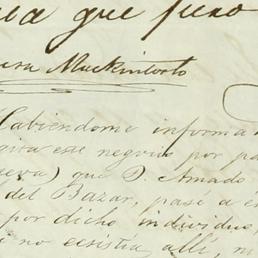 que puso
Mackintosh
Habiéndome informa
este negocio por pa
ueva) que D. Amado
del Bazar, pase a
por dicho individuo,
no ecsistía allí, ni